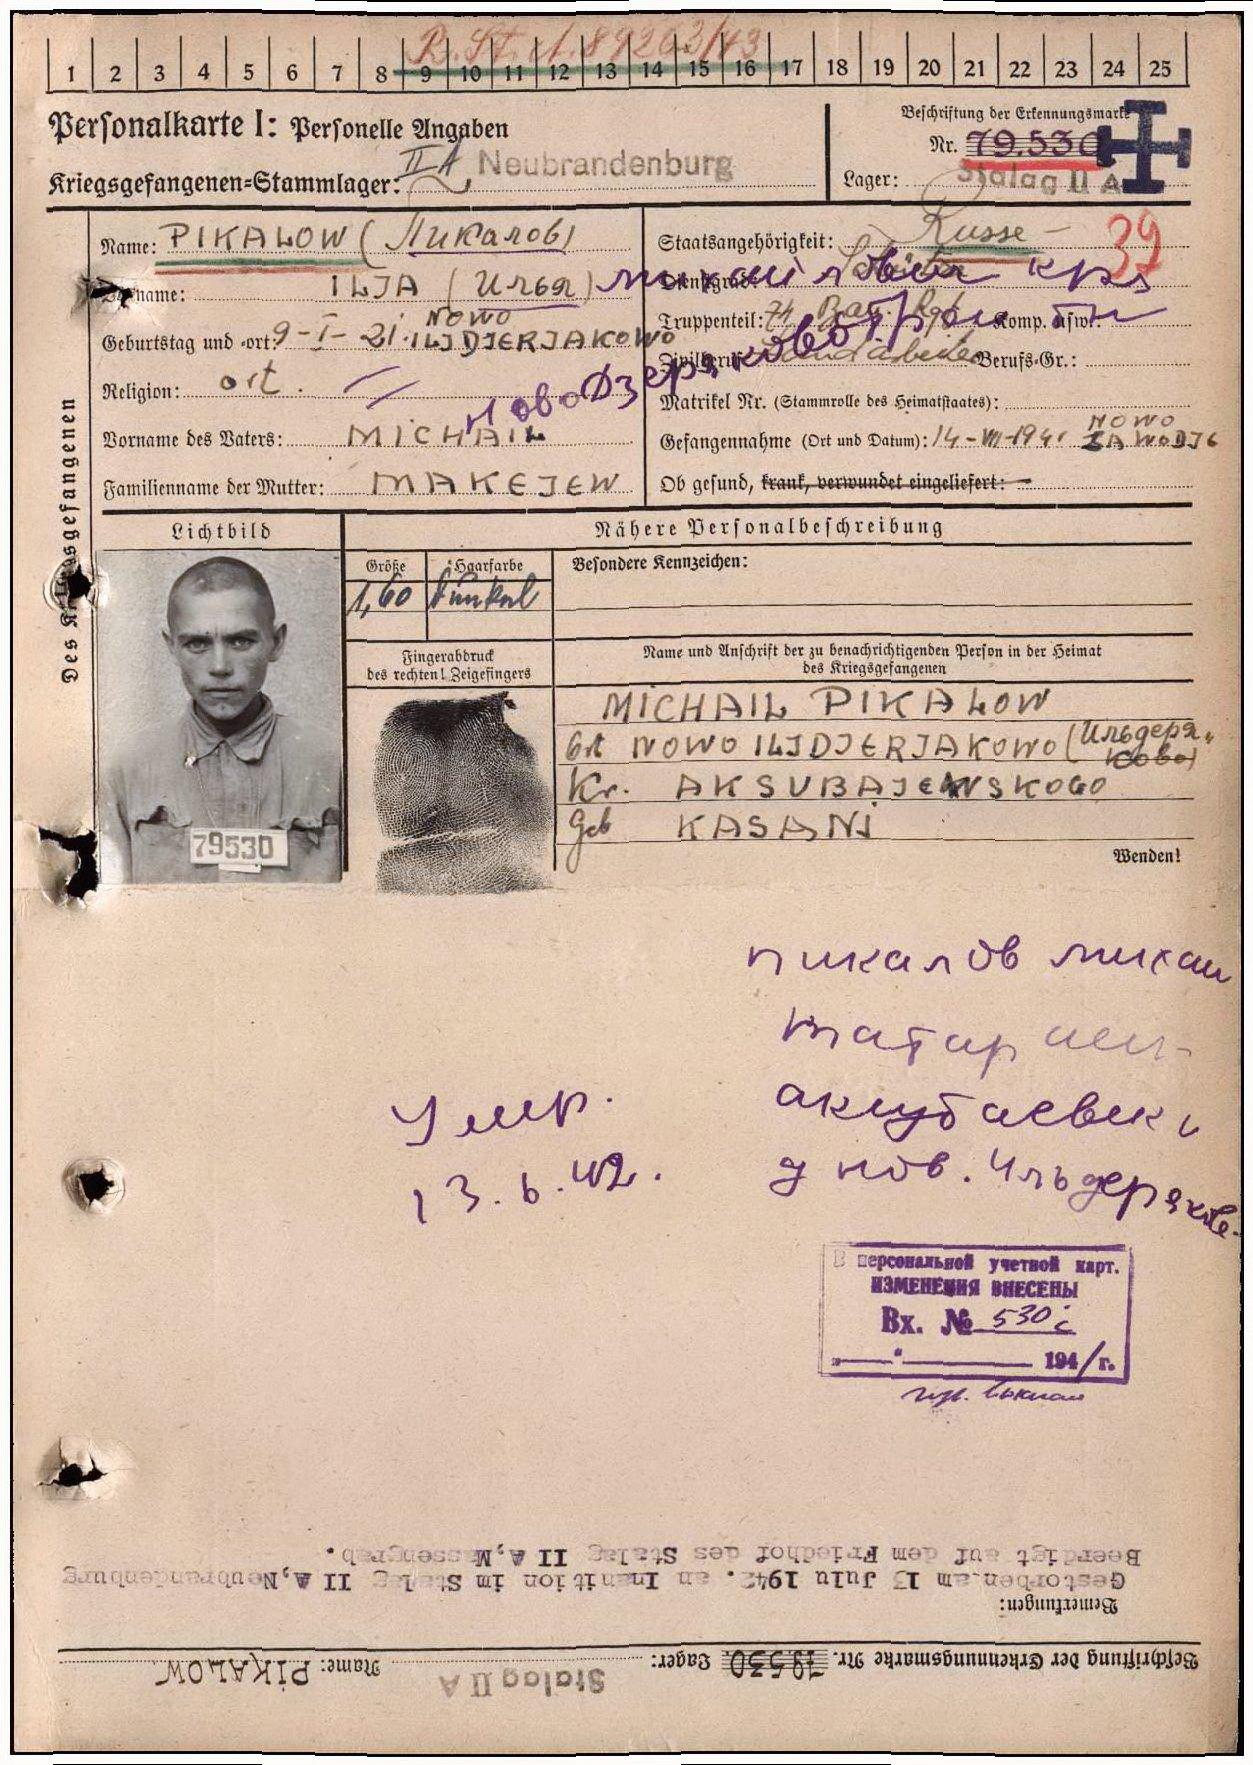 R. St. A. 89263/43
1 2 3 4 5 6 7 8 9 10 11 12 13 14 15 16 17 18 19 20 21 22 23 24 25
Personalkarte I: Personelle Angaben
Beschriftung der Erkennungsmarke
Nr. 79.530
Kriegsgefangenen-Stammlager: II A Neubrandenburg
Lager: Stalag II A
Des Kriegsgefangenen
Name: PIKALOW (Пикалов)
Vorname: ILJA (Илья)
NOWO
Geburtstag und -ort: 9-I-21. ILJDJERJAKOWO
Religion: ort.
Vorname des Vaters: MICHAIL
Familienname der Mutter: MAKEJEW
Staatsangehörigkeit: Russe
39
Dienstgrad:
михайлович кра
Truppenteil: Komp. usw.:
Zivilberuf: Landarbeiter Berufs-Gr.:
Matrikel Nr. (Stammrolle des Heimatstaates):
NOWO
Gefangennahme (Ort und Datum): 14-VII-1941 SAWODJE
Ob gesund, krank, verwundet eingeliefert:
Lichtbild
Nähere Personalbeschreibung
Größe Haarfarbe
1,60 dunkel
Besondere Kennzeichen:
Fingerabdruck
des rechten! Zeigefingers
Name und Anschrift der zu benachrichtigenden Person in der Heimat
des Kriegsgefangenen
MICHAIL PIKALOW
Ort NOWO ILJDJERJAKOWO (Ильдеря-
ково)
Kr. AKSUBAJEWSKOGO
Geb KASANJ
79530
Wenden!
пикалов михаи
татар
Умр.
13.6.42.
д нов. Ильдеряков-
В персональной учетной карт.
ИЗМЕНЕНИЯ ВНЕСЕНЫ
Вх. № 530
" " 194 г.
Beschriftung der Erkennungsmarke Nr. 79530 Lager: Stalag II A Name: PIKALOW
Bemerkungen:
Gestorben am 13 Julu 1942. an Inanition im Stalag II A, Neubrandenburg
Beerdigt auf dem Friedhof des Stalag II A, Massengrab.